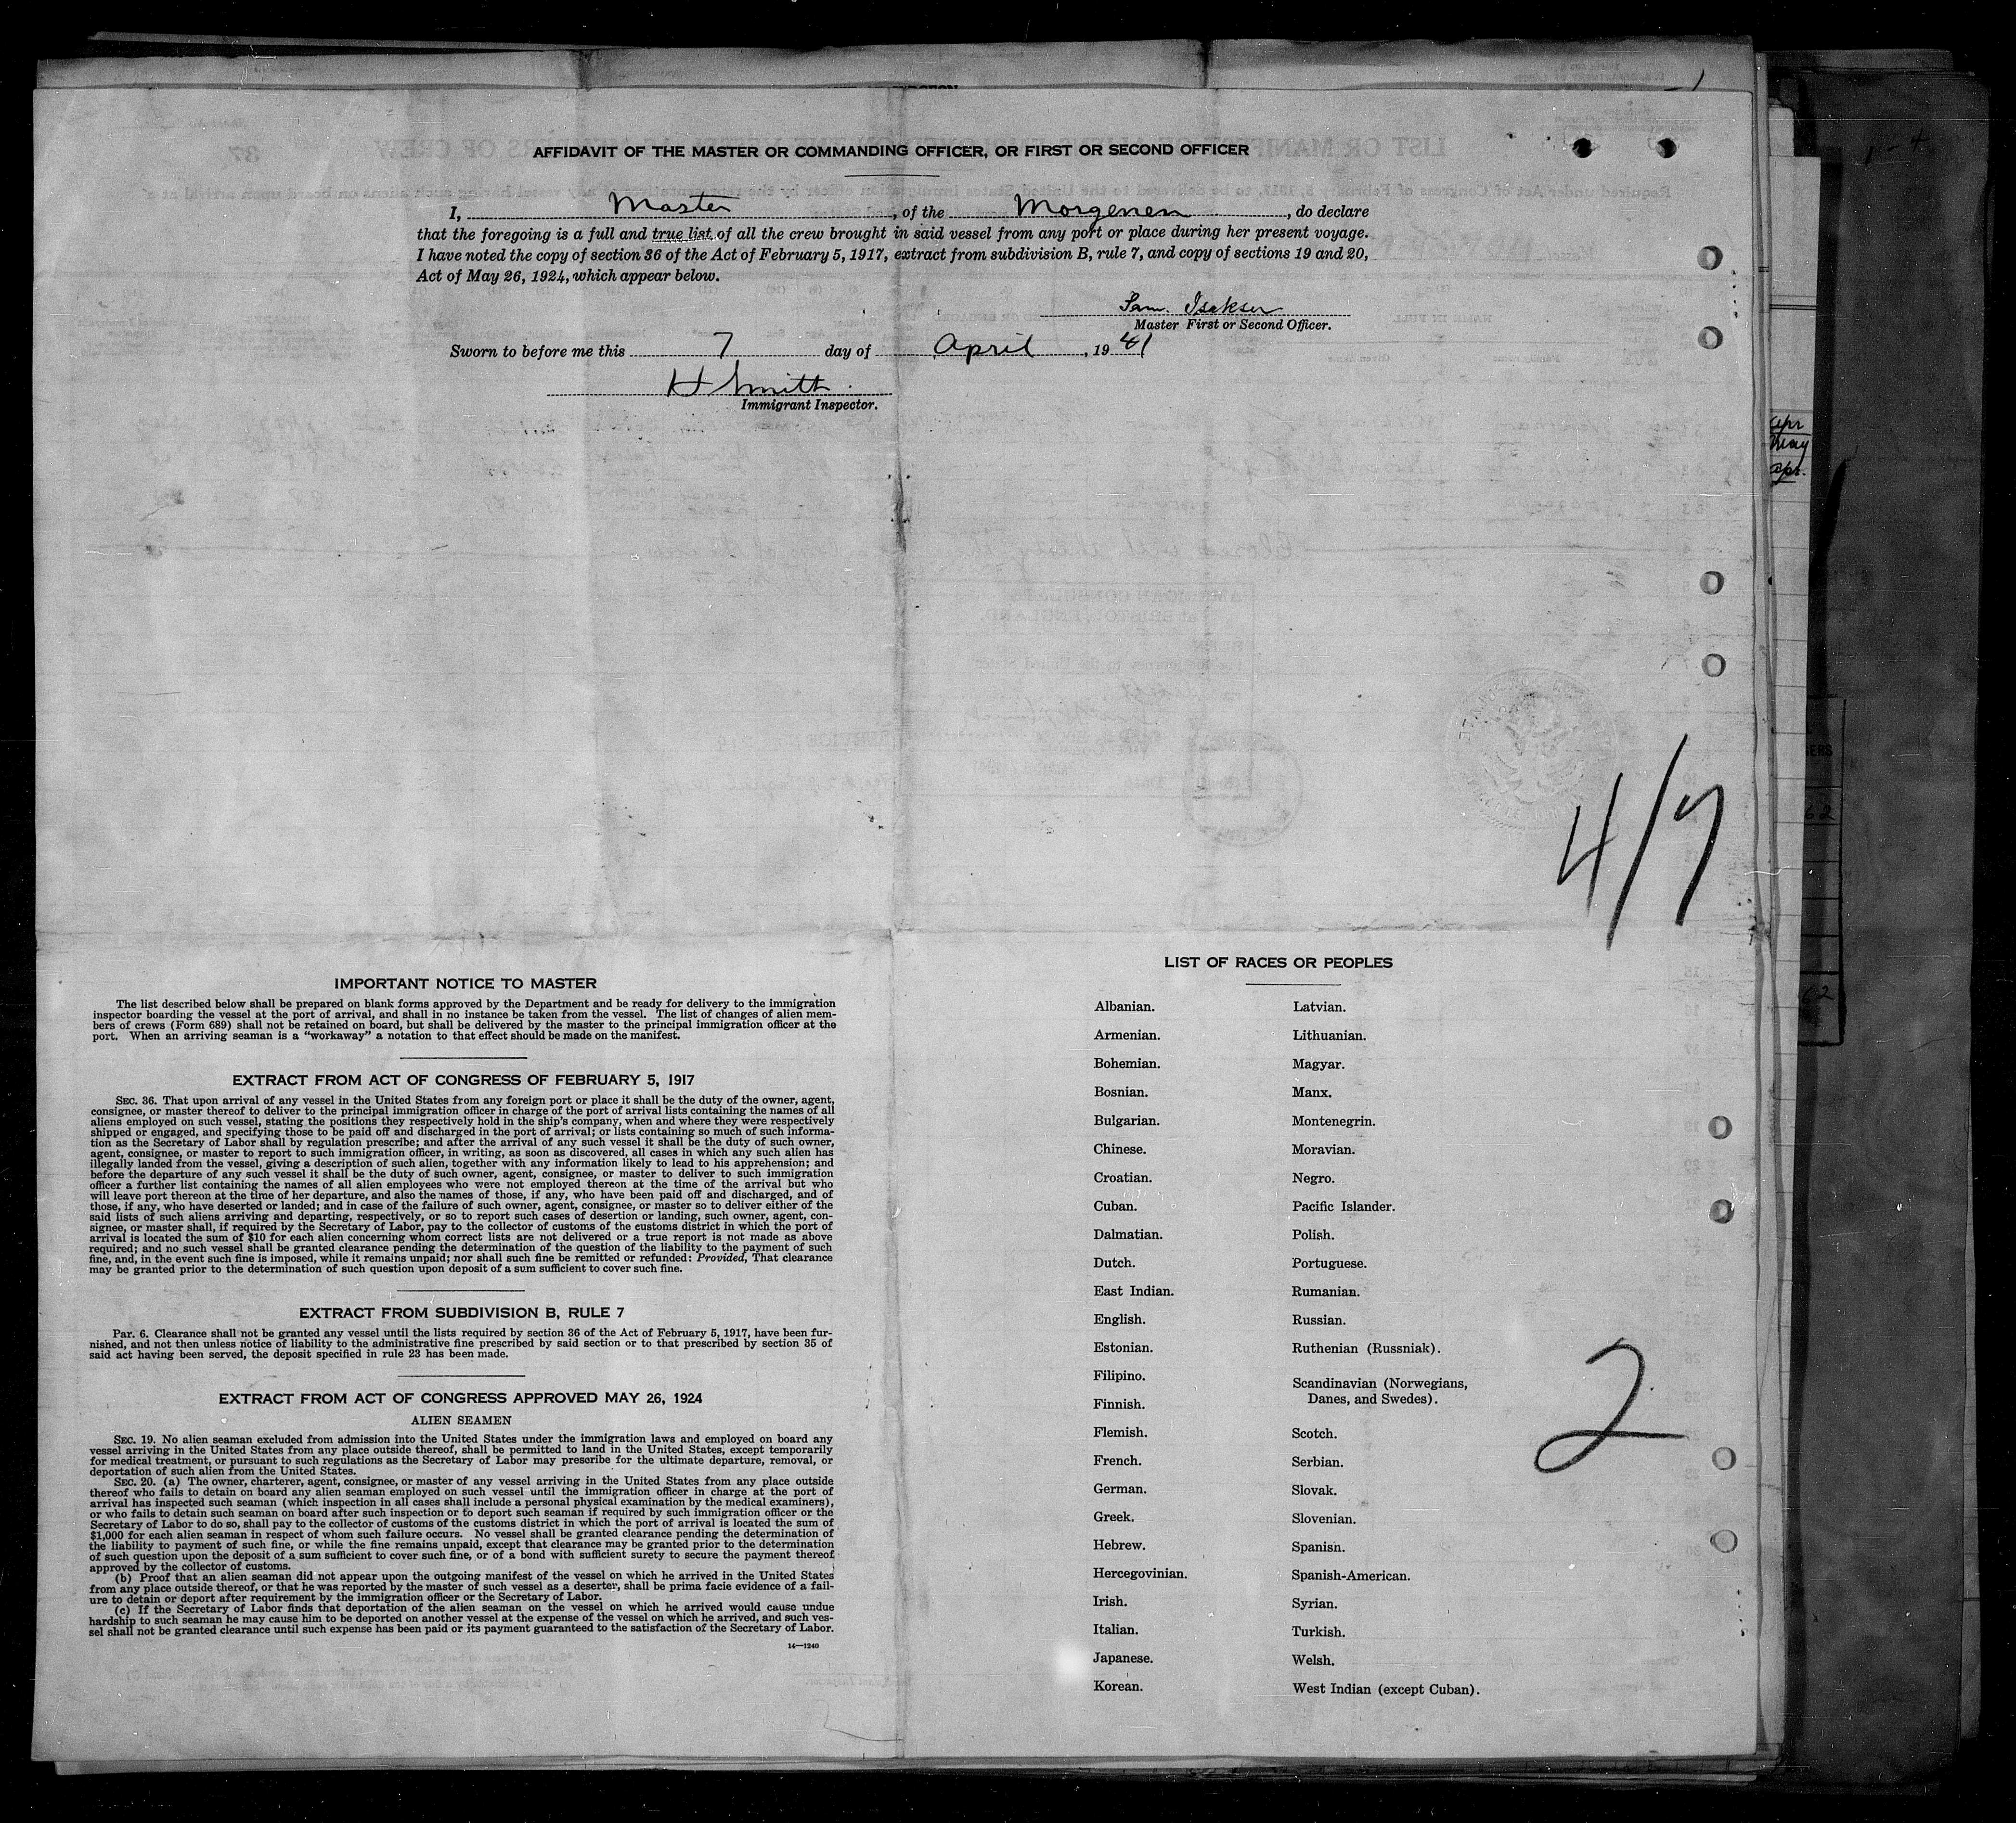 AFFIDAVIT OF THE MASTER OR COMMANDING OFFICER, OR FIRST OR SECOND OFFICER
I, Master, of the Morgenen, do declare
that the foregoing is a full and true list of all the crew brought in said vessel from any port or place during her present voyage.
I have noted the copy of section 36 of the Act of February 5, 1917, extract from subdivision B, rule 7, and copy of sections 19 and 20,
Act of May 26, 1924, which appear below.
Sam. Isaksen
Master First or Second Officer.
Sworn to before me this 7 day of April, 1941
H Smith
Immigrant Inspector.
Apr
May
apr.
4/7
IMPORTANT NOTICE TO MASTER
The list described below shall be prepared on blank forms approved by the Department and be ready for delivery to the immigration
inspector boarding the vessel at the port of arrival, and shall in no instance be taken from the vessel. The list of changes of alien mem-
bers of crews (Form 689) shall not be retained on board, but shall be delivered by the master to the principal immigration officer at the
port. When an arriving seaman is a "workaway" a notation to that effect should be made on the manifest.
EXTRACT FROM ACT OF CONGRESS OF FEBRUARY 5, 1917
SEC. 36. That upon arrival of any vessel in the United States from any foreign port or place it shall be the duty of the owner, agent,
consignee, or master thereof to deliver to the principal immigration officer in charge of the port of arrival lists containing the names of all
aliens employed on such vessel, stating the positions they respectively hold in the ship's company, when and where they were respectively
shipped or engaged, and specifying those to be paid off and discharged in the port of arrival; or lists containing so much of such informa-
tion as the Secretary of Labor shall by regulation prescribe; and after the arrival of any such vessel it shall be the duty of such owner,
agent, consignee, or master to report to such immigration officer, in writing, as soon as discovered, all cases in which any such alien has
illegally landed from the vessel, giving a description of such alien, together with any information likely to lead to his apprehension; and
before the departure of any such vessel it shall be the duty of such owner, agent, consignee, or master to deliver to such immigration
officer a further list containing the names of all alien employees who were not employed thereon at the time of the arrival but who
will leave port thereon at the time of her departure, and also the names of those, if any, who have been paid off and discharged, and of
those, if any, who have deserted or landed; and in case of the failure of such owner, agent, consignee, or master so to deliver either of the
said lists of such aliens arriving and departing, respectively, or so to report such cases of desertion or landing, such owner, agent, con-
signee, or master shall, if required by the Secretary of Labor, pay to the collector of customs of the customs district in which the port of
arrival is located the sum of $10 for each alien concerning whom correct lists are not delivered or a true report is not made as above
required; and no such vessel shall be granted clearance pending the determination of the question of the liability to the payment of such
fine, and, in the event such fine is imposed, while it remains unpaid; nor shall such fine be remitted or refunded: Provided, That clearance
may be granted prior to the determination of such question upon deposit of a sum sufficient to cover such fine.
EXTRACT FROM SUBDIVISION B, RULE 7
Par. 6. Clearance shall not be granted any vessel until the lists required by section 36 of the Act of February 5, 1917, have been fur-
nished, and not then unless notice of liability to the administrative fine prescribed by said section or to that prescribed by section 35 of
said act having been served, the deposit specified in rule 23 has been made.
EXTRACT FROM ACT OF CONGRESS APPROVED MAY 26, 1924
ALIEN SEAMEN
SEC. 19. No alien seaman excluded from admission into the United States under the immigration laws and employed on board any
vessel arriving in the United States from any place outside thereof, shall be permitted to land in the United States, except temporarily
for medical treatment, or pursuant to such regulations as the Secretary of Labor may prescribe for the ultimate departure, removal, or
deportation of such alien from the United States.
SEC. 20. (a) The owner, charterer, agent, consignee, or master of any vessel arriving in the United States from any place outside
thereof who fails to detain on board any alien seaman employed on such vessel until the immigration officer in charge at the port of
arrival has inspected such seaman (which inspection in all cases shall include a personal physical examination by the medical examiners),
or who fails to detain such seaman on board after such inspection or to deport such seaman if required by such immigration officer or the
Secretary of Labor to do so, shall pay to the collector of customs of the customs district in which the port of arrival is located the sum of
$1,000 for each alien seaman in respect of whom such failure occurs. No vessel shall be granted clearance pending the determination of
the liability to payment of such fine, or while the fine remains unpaid, except that clearance may be granted prior to the determination
of such question upon the deposit of a sum sufficient to cover such fine, or of a bond with sufficient surety to secure the payment thereof
approved by the collector of customs.
(b) Proof that an alien seaman did not appear upon the outgoing manifest of the vessel on which he arrived in the United States
from any place outside thereof, or that he was reported by the master of such vessel as a deserter, shall be prima facie evidence of a fail-
ure to detain or deport after requirement by the immigration officer or the Secretary of Labor.
(c) If the Secretary of Labor finds that deportation of the alien seaman on the vessel on which he arrived would cause undue
hardship to such seaman he may cause him to be deported on another vessel at the expense of the vessel on which he arrived, and such ves-
sel shall not be granted clearance until such expense has been paid or its payment guaranteed to the satisfaction of the Secretary of Labor.
14—1240
LIST OF RACES OR PEOPLES
Albanian.
Armenian.
Bohemian.
Bosnian.
Bulgarian.
Chinese.
Croatian.
Cuban.
Dalmatian.
Dutch.
East Indian.
English.
Estonian.
Filipino.
Finnish.
Flemish.
French.
German.
Greek.
Hebrew.
Hercegovinian.
Irish.
Italian.
Japanese.
Korean.
Latvian.
Lithuanian.
Magyar.
Manx.
Montenegrin.
Moravian.
Negro.
Pacific Islander.
Polish.
Portuguese.
Rumanian.
Russian.
Ruthenian (Russniak).
Scandinavian (Norwegians,
Danes, and Swedes).
Scotch.
Serbian.
Slovak.
Slovenian.
Spanish.
Spanish-American.
Syrian.
Turkish.
Welsh.
West Indian (except Cuban).
2